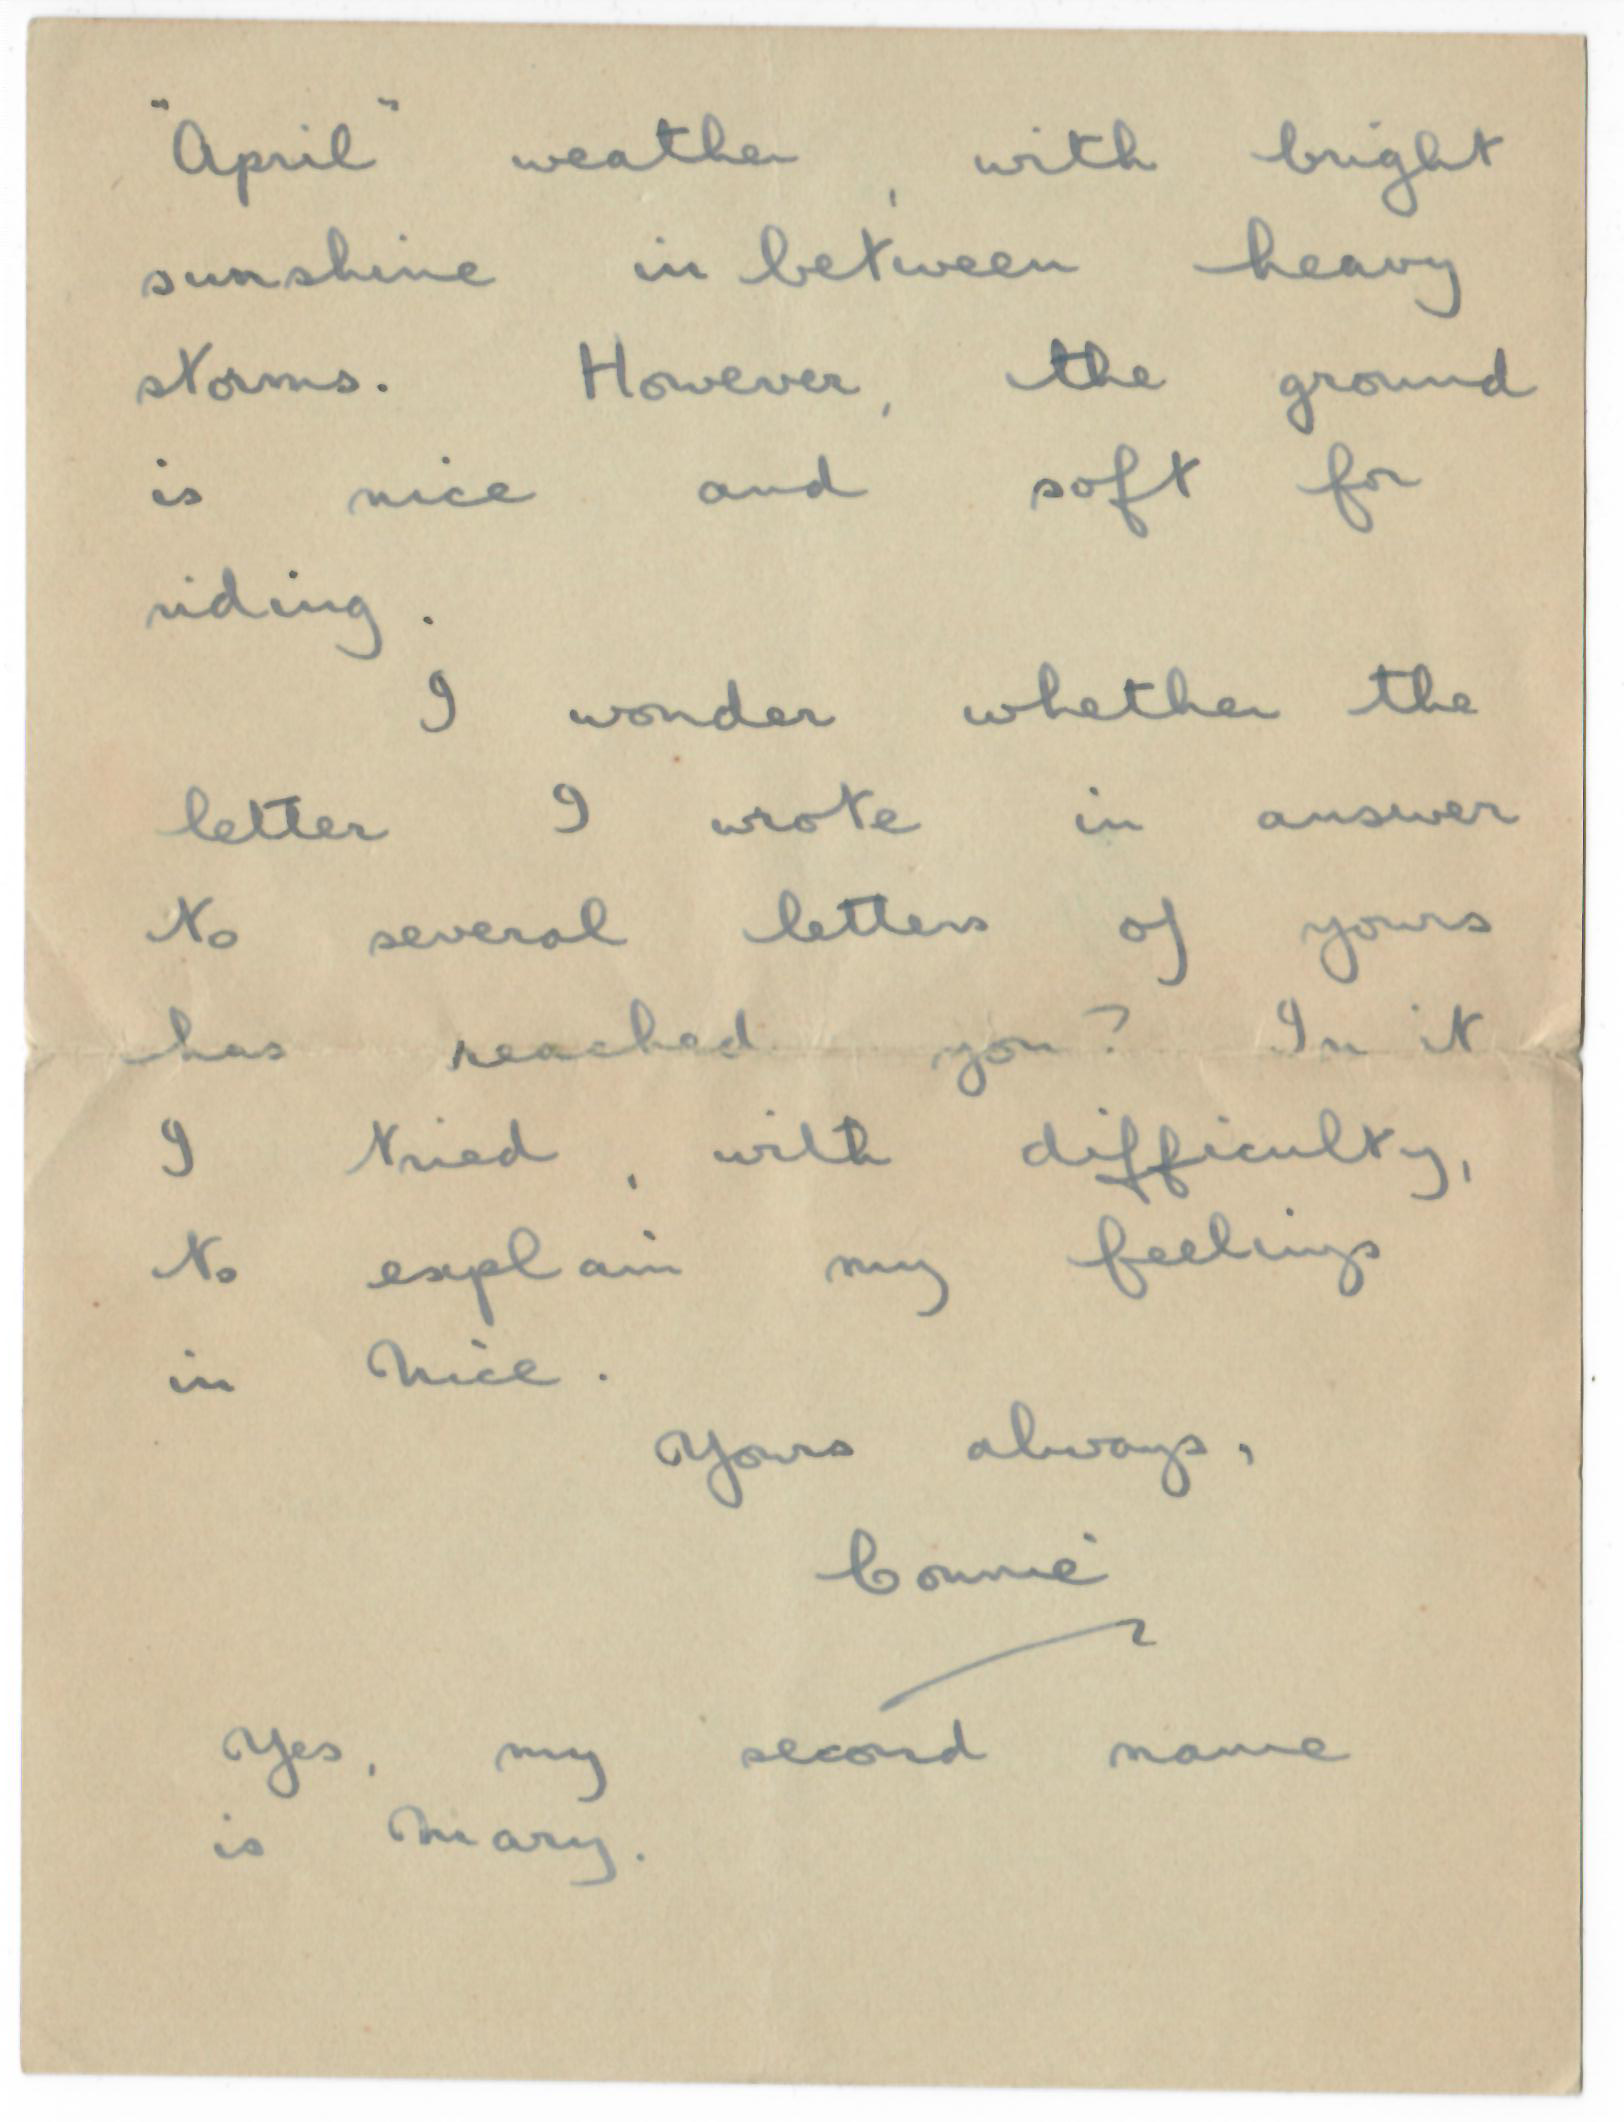 "April" weather, with bright
sunshine in between heavy
storms. However, the ground
is nice and soft for
riding.
I wonder whether the
letter I wrote in answer
to several letters of yours
has reached you? In it
I tried, with difficulty,
to explain my feelings
in Nice.
Yours always,
Connie
Yes, my second name
is Mary.